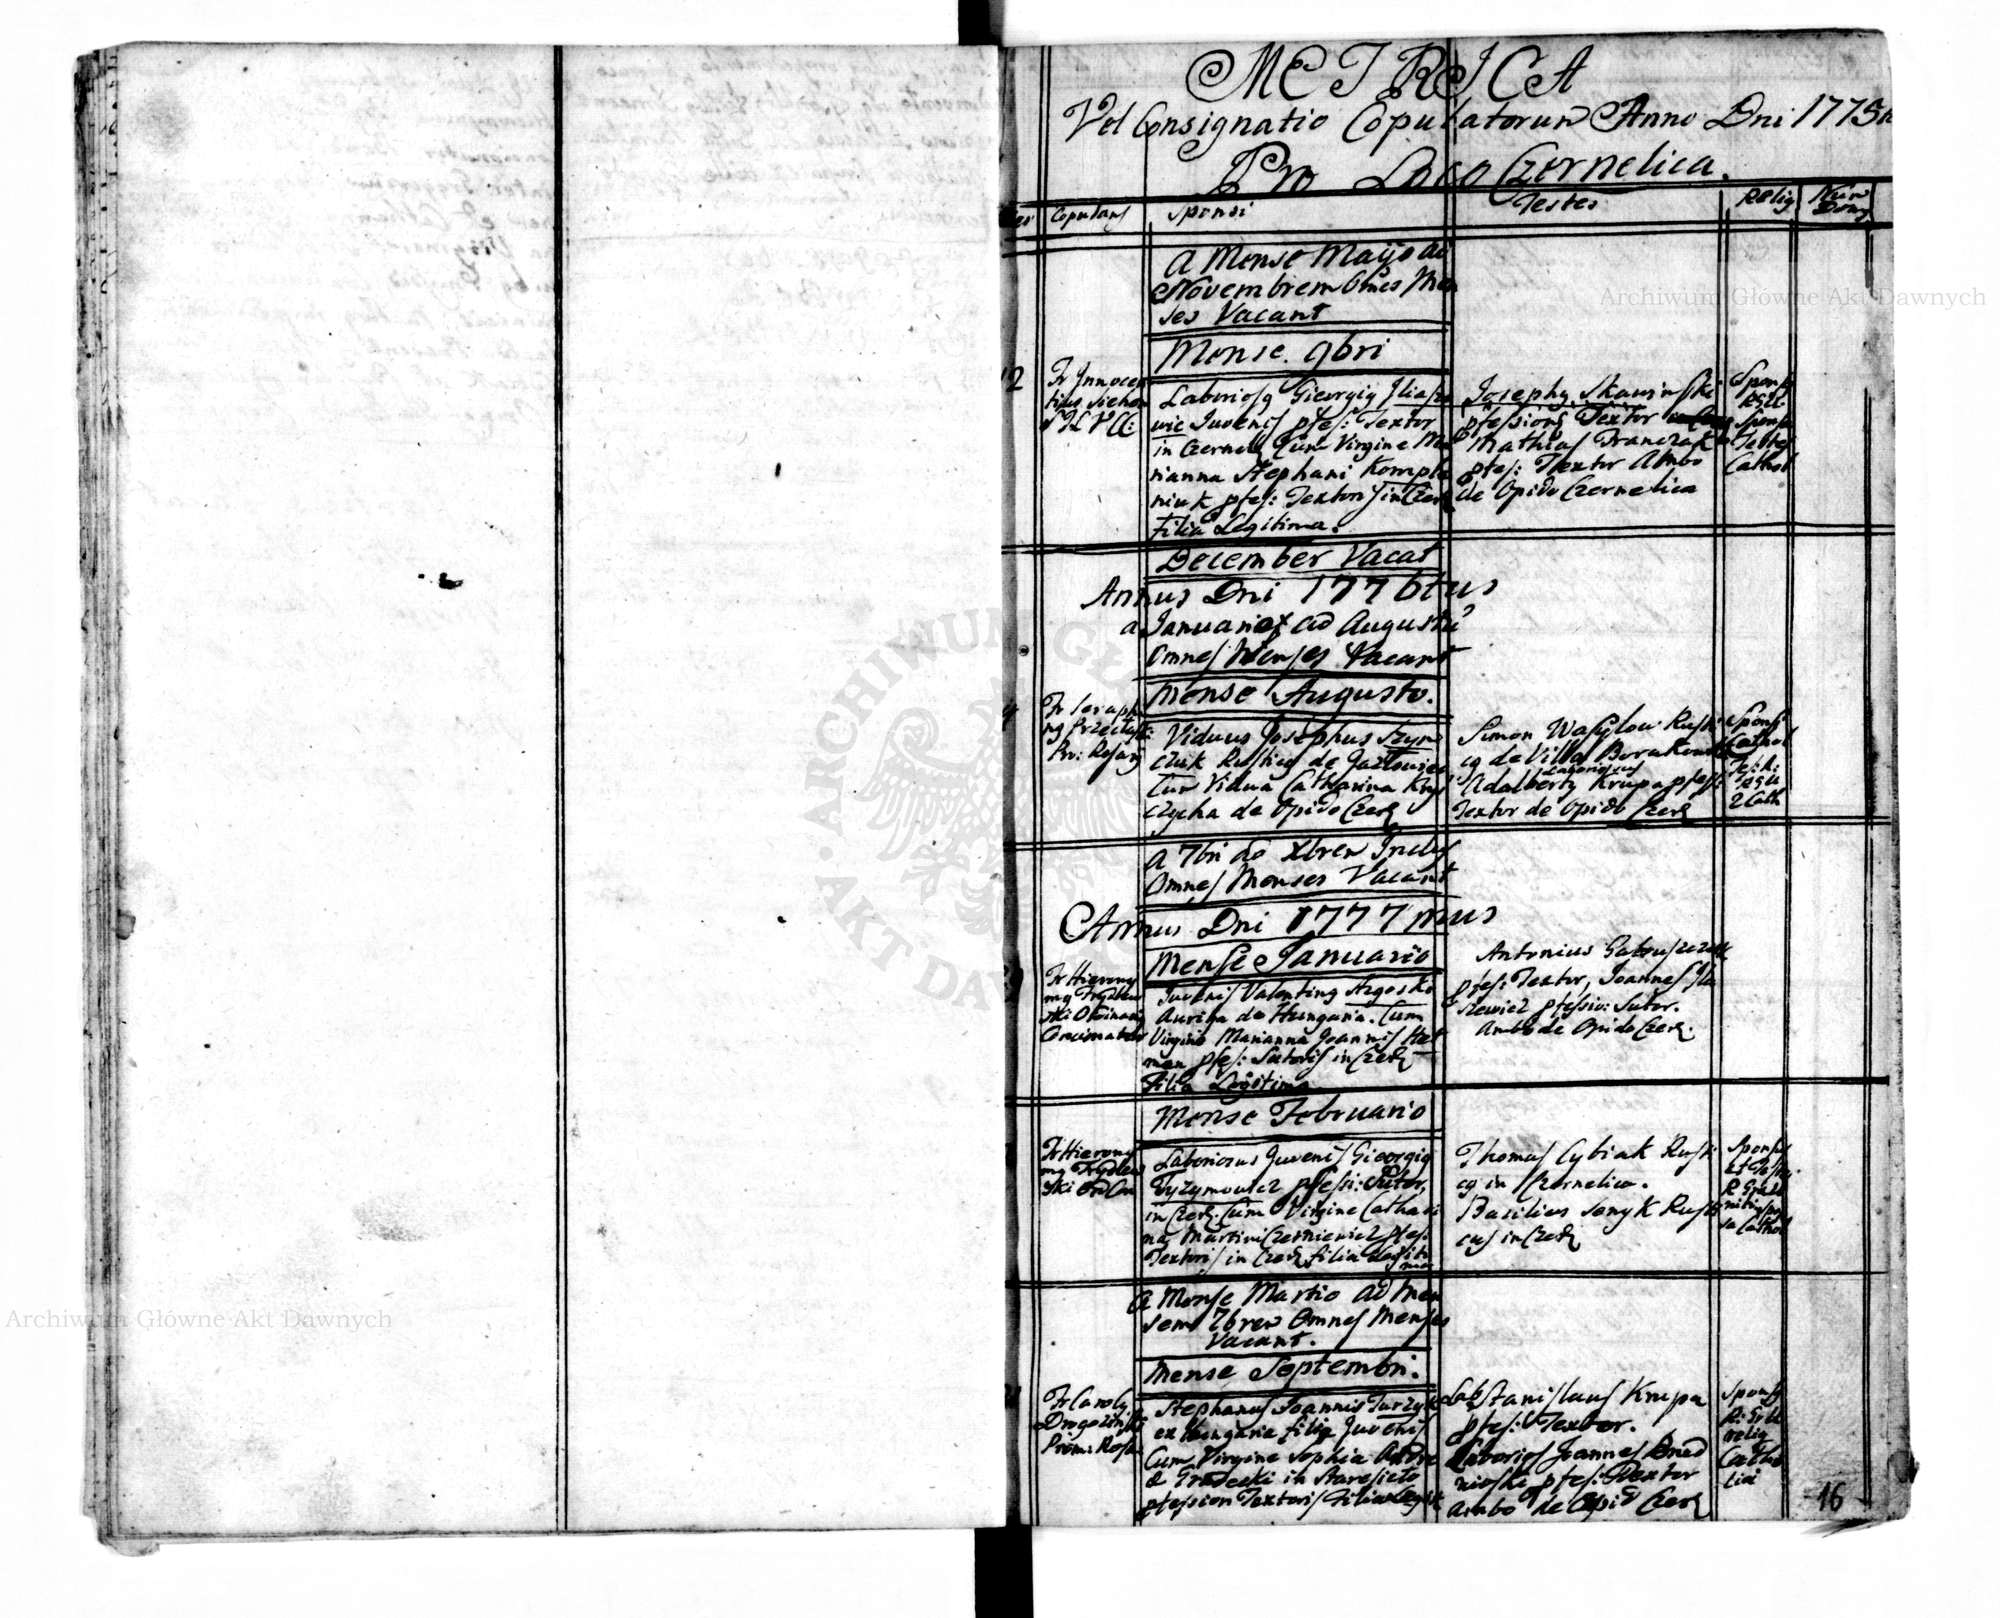 METRICA
Vel Consignatio Copulatorum Anno Dni 1775
Pro Loco Czernelica.
Copulans Sponsi Testes Relig Num Dom
A Mense Maijo ad
Novembrem Omes Men
ses Vacant
Mense 9bri
12
Fr Innocen
tius
Laboriosg Gieorgig Iliasze
wic Iuvenis pfes: Textor
in Czernel Cum Virgine Ma
rianna Stephani Kompla
niuk pfes: Textoris in Czer
filia Legitima.
Josephg Skawinski
pfessiong Textor
Mathias Franczak
pfes: Textor Ambo
de Opido Czernelica
Sponsg
RGU
Sponsa
Testes
Cathol
December Vacat
Annus Dni 1776tus
a Ianuario ad Augustu
Omnes Menses Vacant
Mense Augusto.
Fr Seraph
Pr: Rosarij
Viduus Josephus Szym
czuk Rusticg de Jazlowiec
Cum Vidua Catharina Kry
czycha de Opido Czer
Simon Wasylow Rusti
cg de Villa
Laboriosus
Adalbertg Krupa pfess:
Textor de Opido Czer
Sponsi
Cathol
RGU
2 Cath
A 7bri ad Xbrem Inclus
Omnes Menses Vacant
Annus Dni 1777mus
Mense Ianuario
Fr Hierony
mg Frydlew
ski Ordinarig
Concionator
Iuvenis Valenting
Auriga de Hungaria. Cum
Virgine Marianna Joannis Het
man pfes: Sutoris in Czer
filia Legitima
Antonius
pfes: Textor, Joannes Ilia
szewicz pfessio: Sutor.
Ambo de Opido Czer.
Mense Februario
Fr Hierony
mg Frydlew
ski Ord Con
Laboriosus Iuvenis Gieorgig
Tyzymowicz pfess: Sutor,
in Czer. Cum Virgine Cathari
na Martini Czerniewicz pfes:
Textoris in Czer filia Legiti
ma
Thomas Cybiak Rusti
cg in Czernelica.
Basilius Senyk Rusti
cus in Czer
Sponsus
et Testes
R G
Spon
sa Cathol
A Mense Martio ad Men
sem 7brem Omnes Menses
Vacant.
Mense Septembri.
Fr Carolg
Drogozinski
Prom: Rosar:
Stephanus Joannis Turzyk
ex Hungaria filig Iuvenis
Cum Virgine Sophia Andre
Gradecki in
pfession Textoris filia Legit
Lab Stanislaus Krupa
pfes: Textor.
Laborios Joannes
pfes: Textor
Ambo de Opid Czer
Sponsg
R: G U
relig
Catho
lica
16
Archiwum Główne Akt Dawnych
Archiwum Główne Akt Dawnych